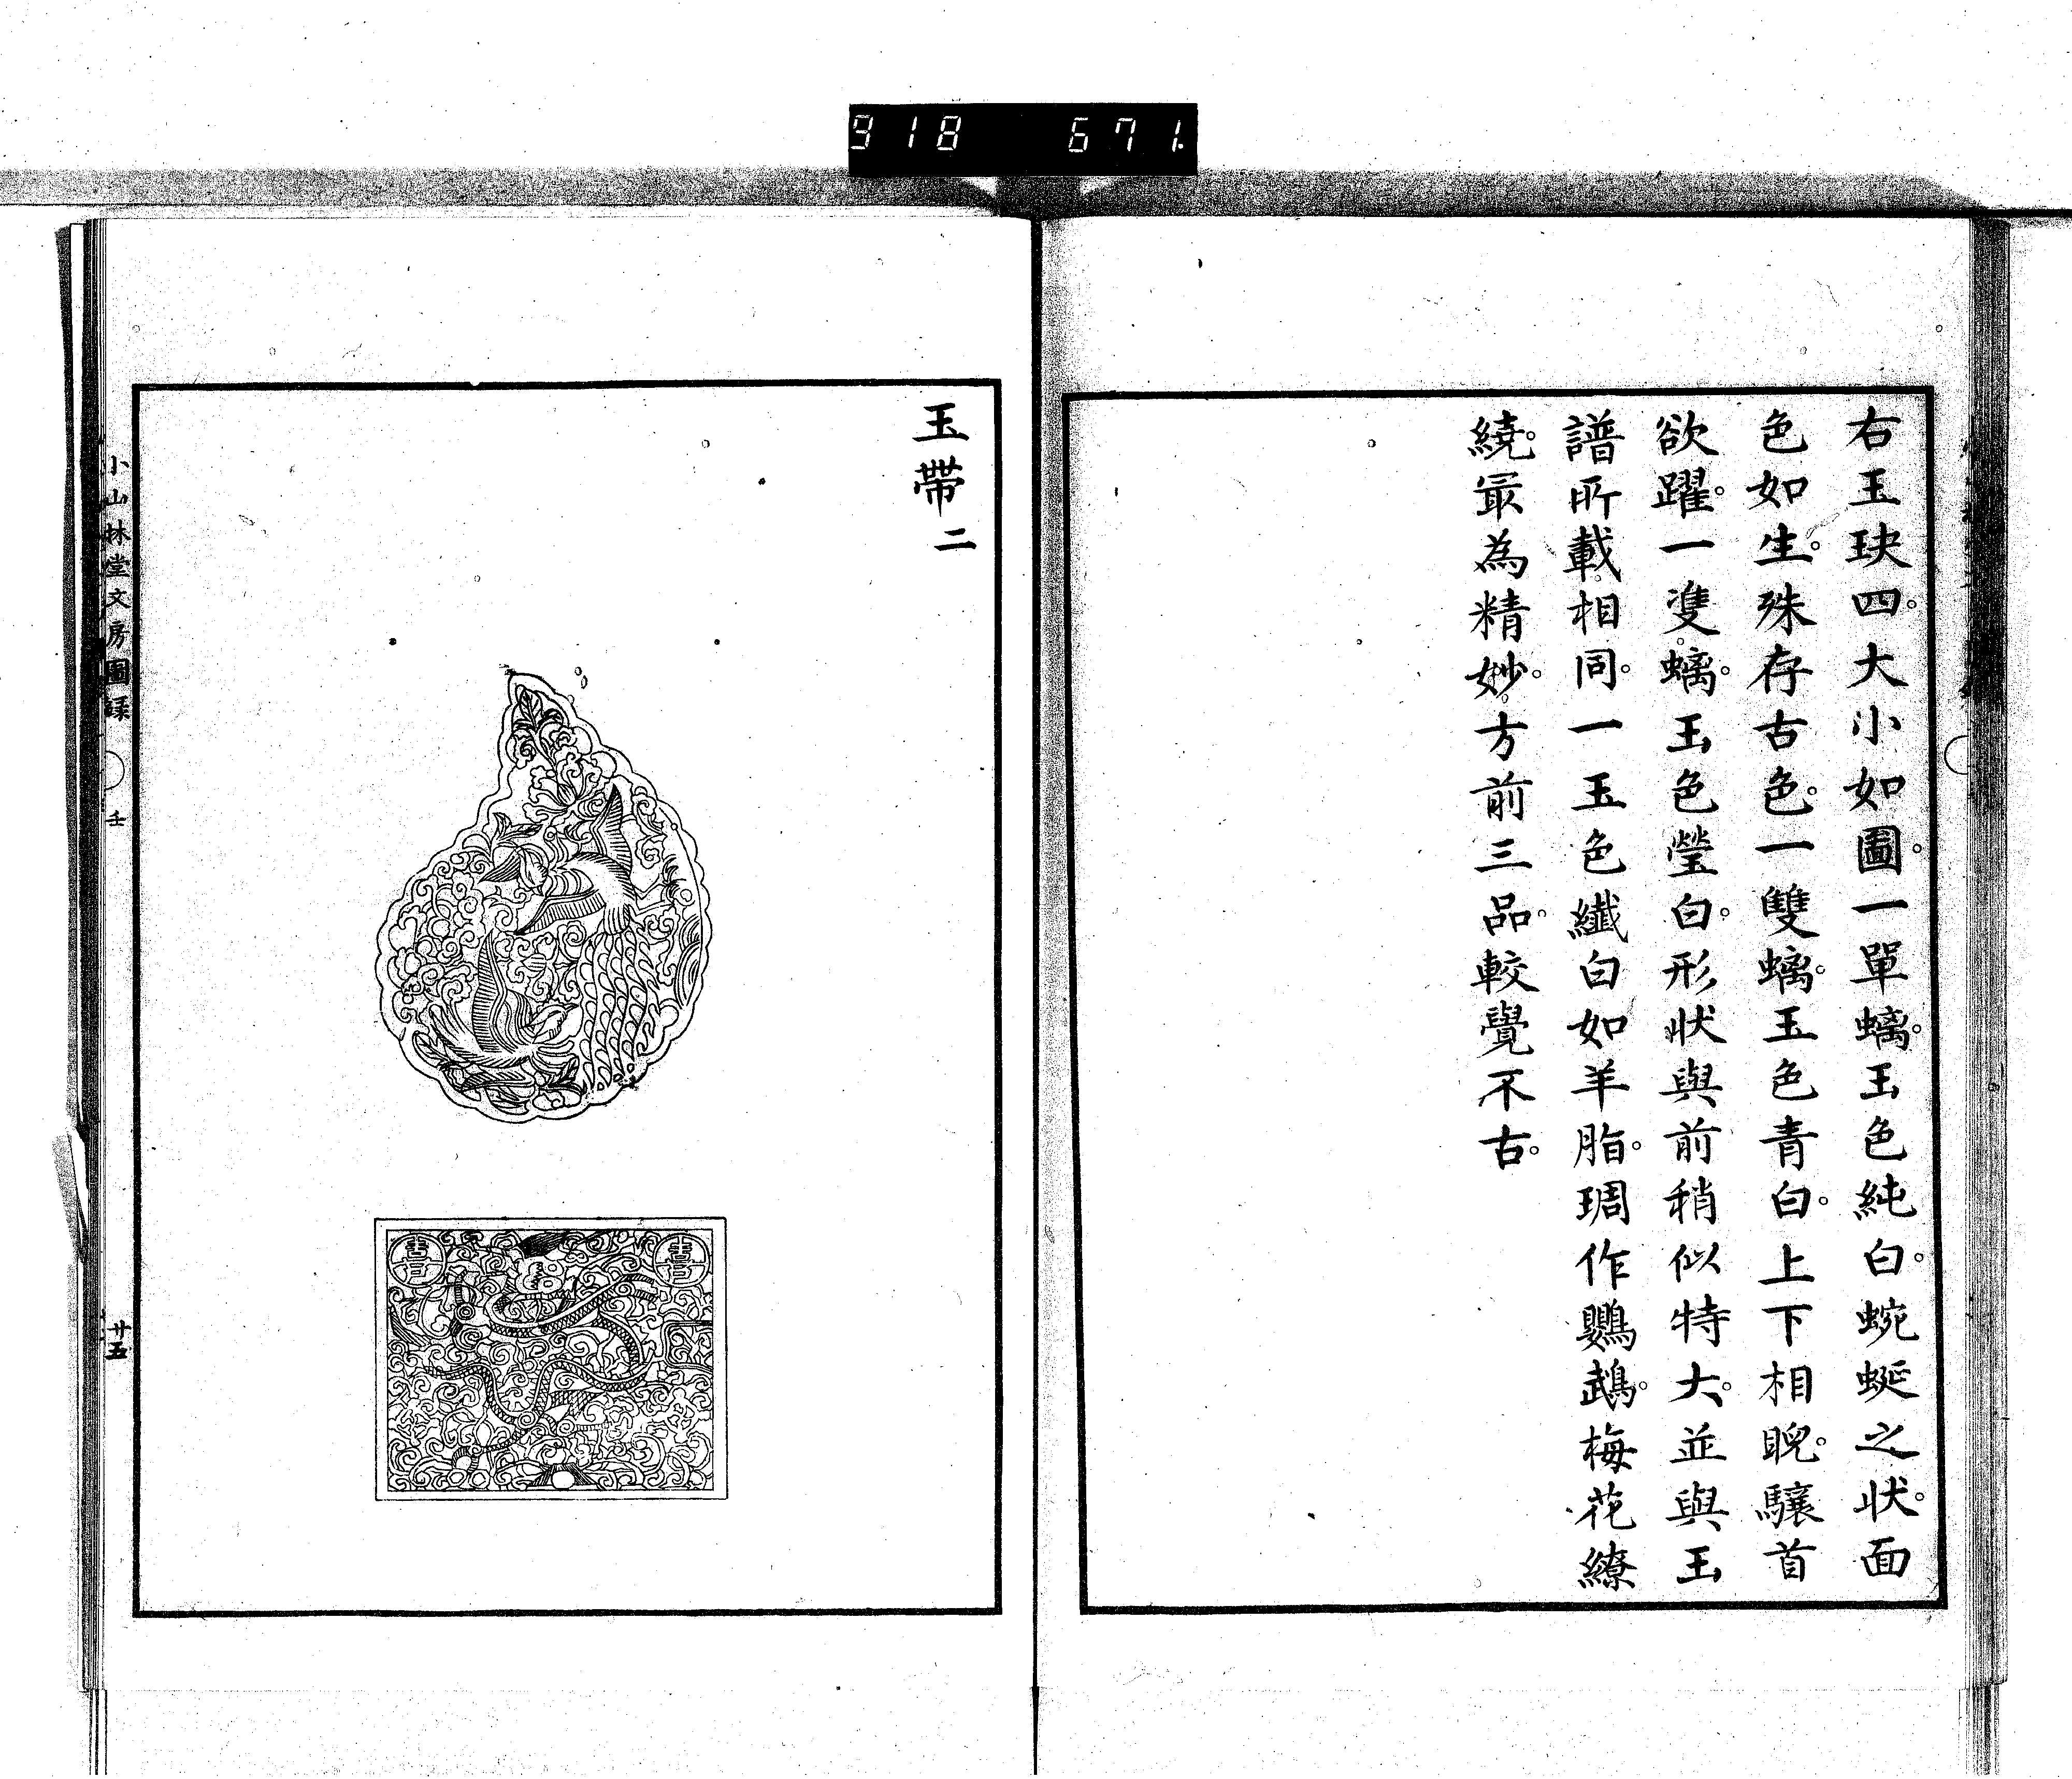 918 671.
右玉玦四。大小如圖。一單螭。玉色純白。蜿蜒之状。面
色如生。殊存古色。一雙螭。玉色青白。上下相睨。驤首
欲躍。一雙螭。玉色瑩白。形状與前稍似特大。並與玉
譜所載相同。一玉色纖白如羊脂。琱作鸚鵡。梅花繚
繞。最為精妙。方前三品。較覺不古。
玉帶二
喜
喜
小山林堂文房圖録
壬
廿五